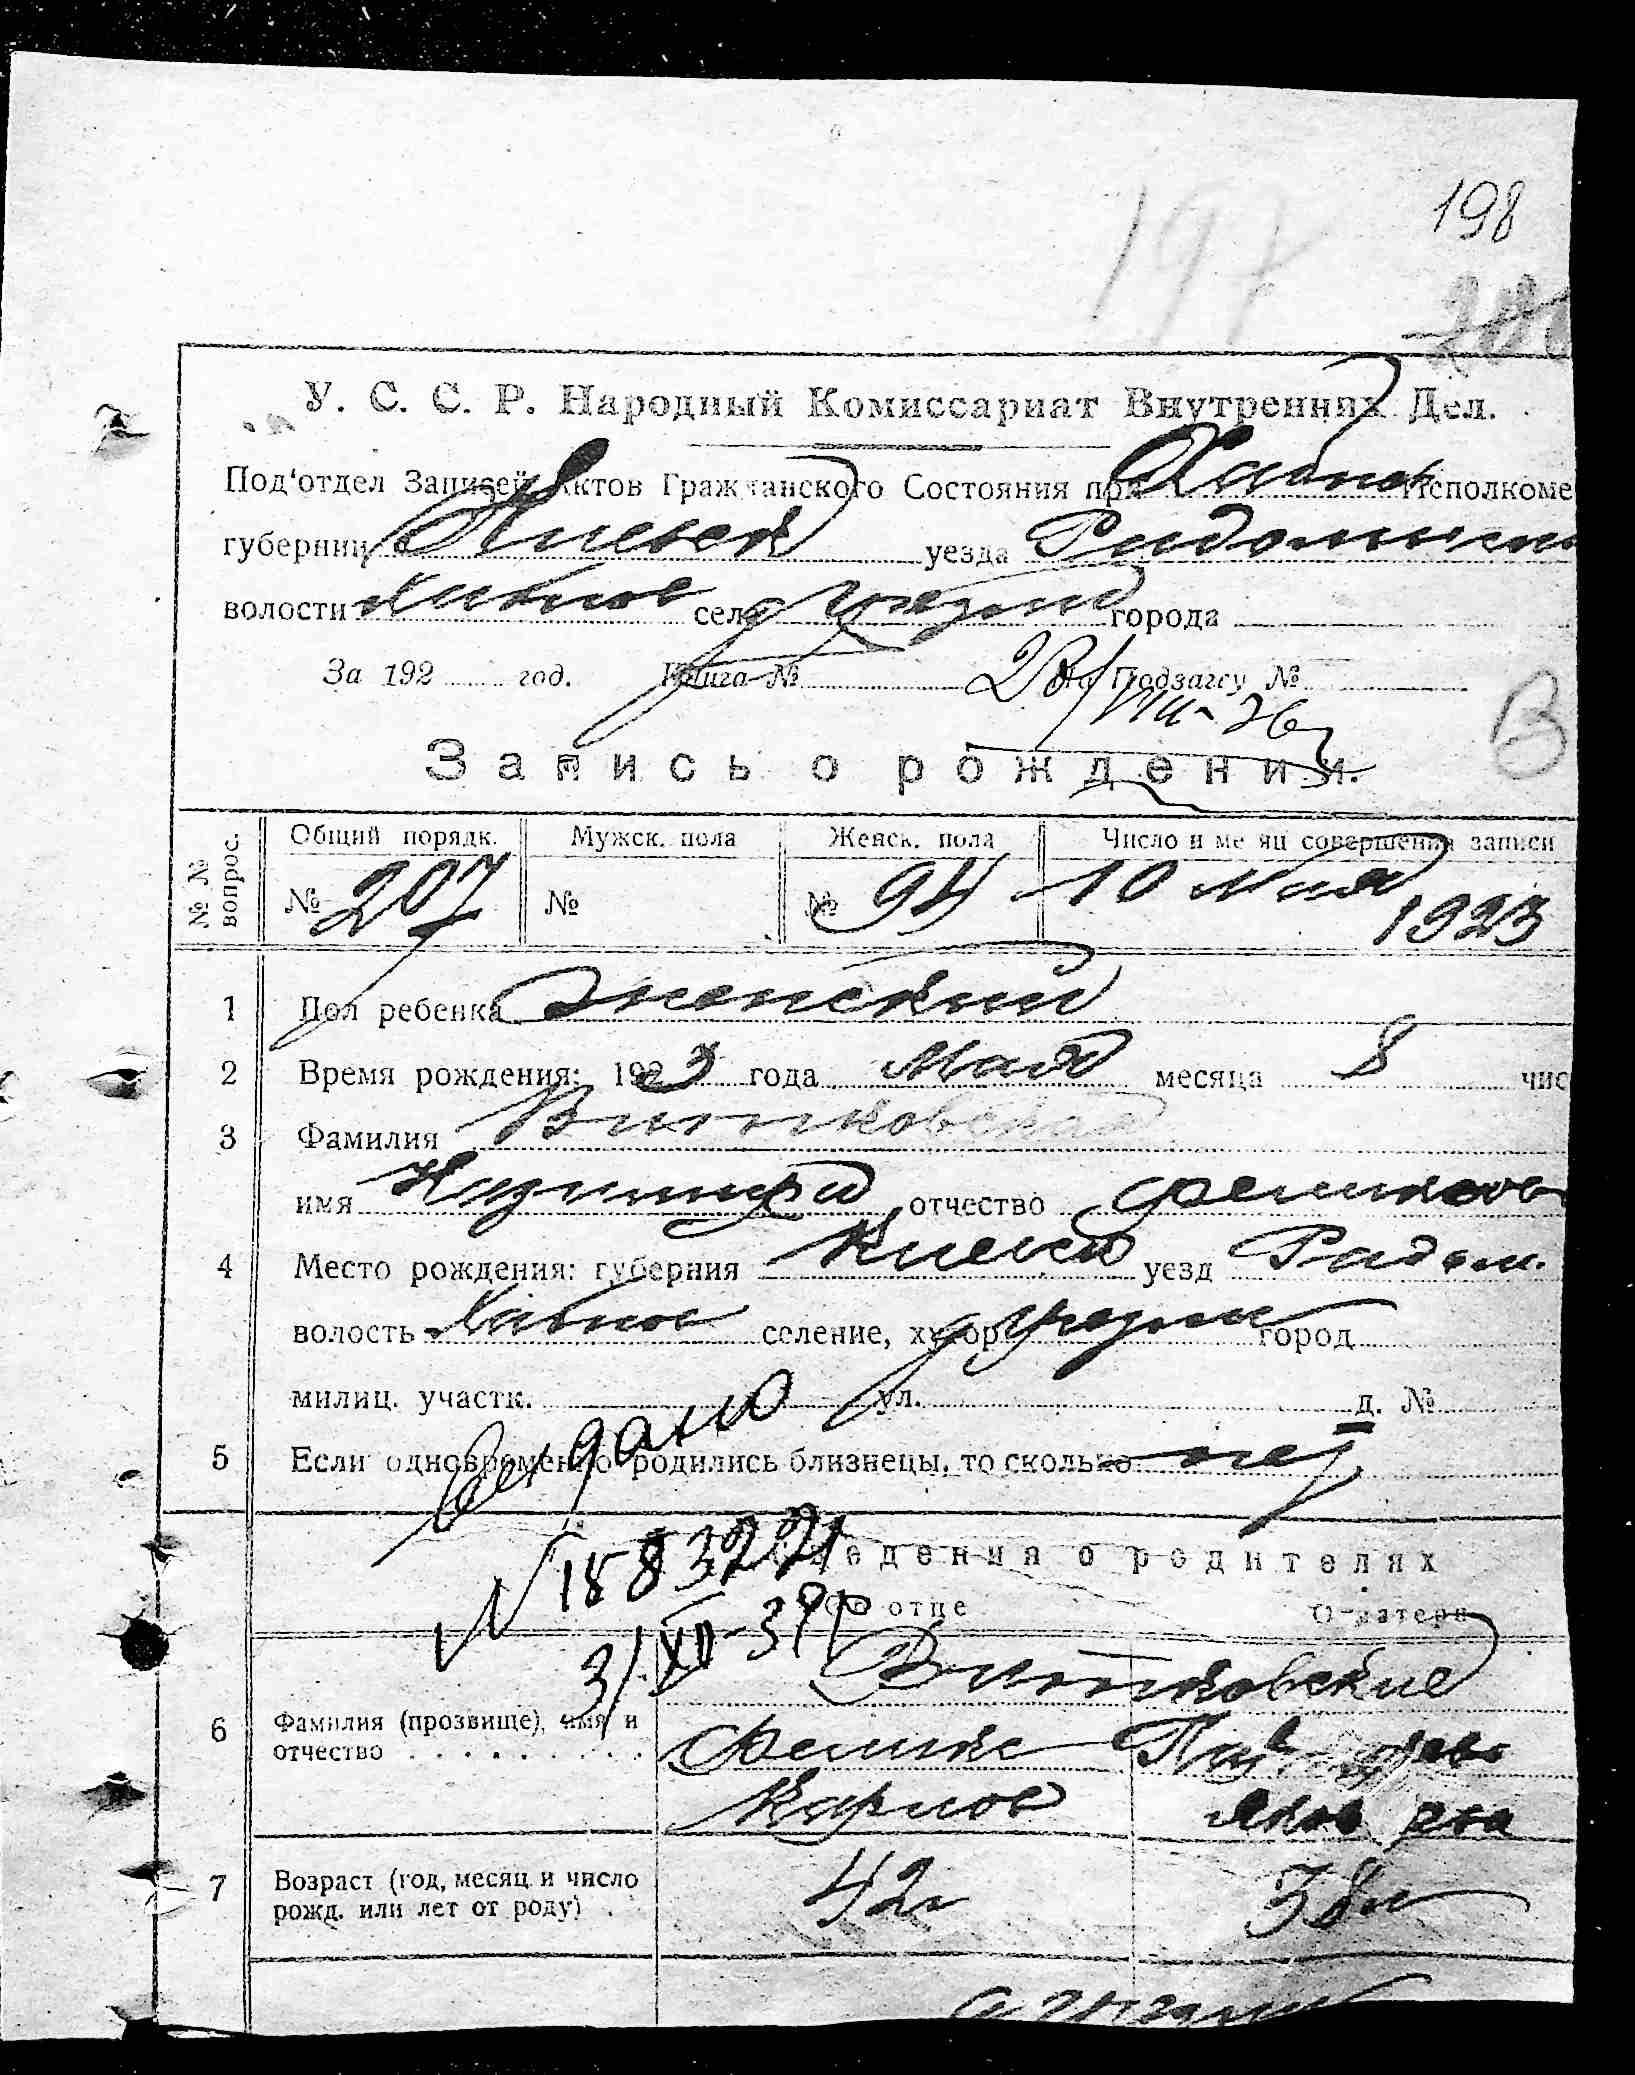 198
197
У. С. С. Р. Народный Комиссариат Внутренних Дел.
Под'отдел Записей Актов Гражданского Состояния при Хабнов Исполкоме
губернии Киевск уезда Радомысл
волости Хабное села города
За 192 год. Книга № По Подзагсу №
28/VIII-36
В
Запись о рождении.
№№ вопрос. Общий порядк. Мужск. пола Женск. пола Число и месяц совершения записи
№ 207 № № 94 10 Мая 1923
1 Пол ребенка Женский
2 Время рождения: 1923 года Мая месяца 8 чис
3 Фамилия Витковская
имя отчество Феликсов
4 Место рождения: губерния Киевск уезд Радом.
волость Хабное селение, хутор город
милиц. участк. ул. д. №
5 Если одновременно родились близнецы, то сколько нет
№ 1883221
Сведения о родителях
31/XII-39
Об отце О матери
Витковские
6 Фамилия (прозвище), имя и отчество Феликс
Карлов
7 Возраст (год, месяц и число рожд. или лет от роду) 42 38